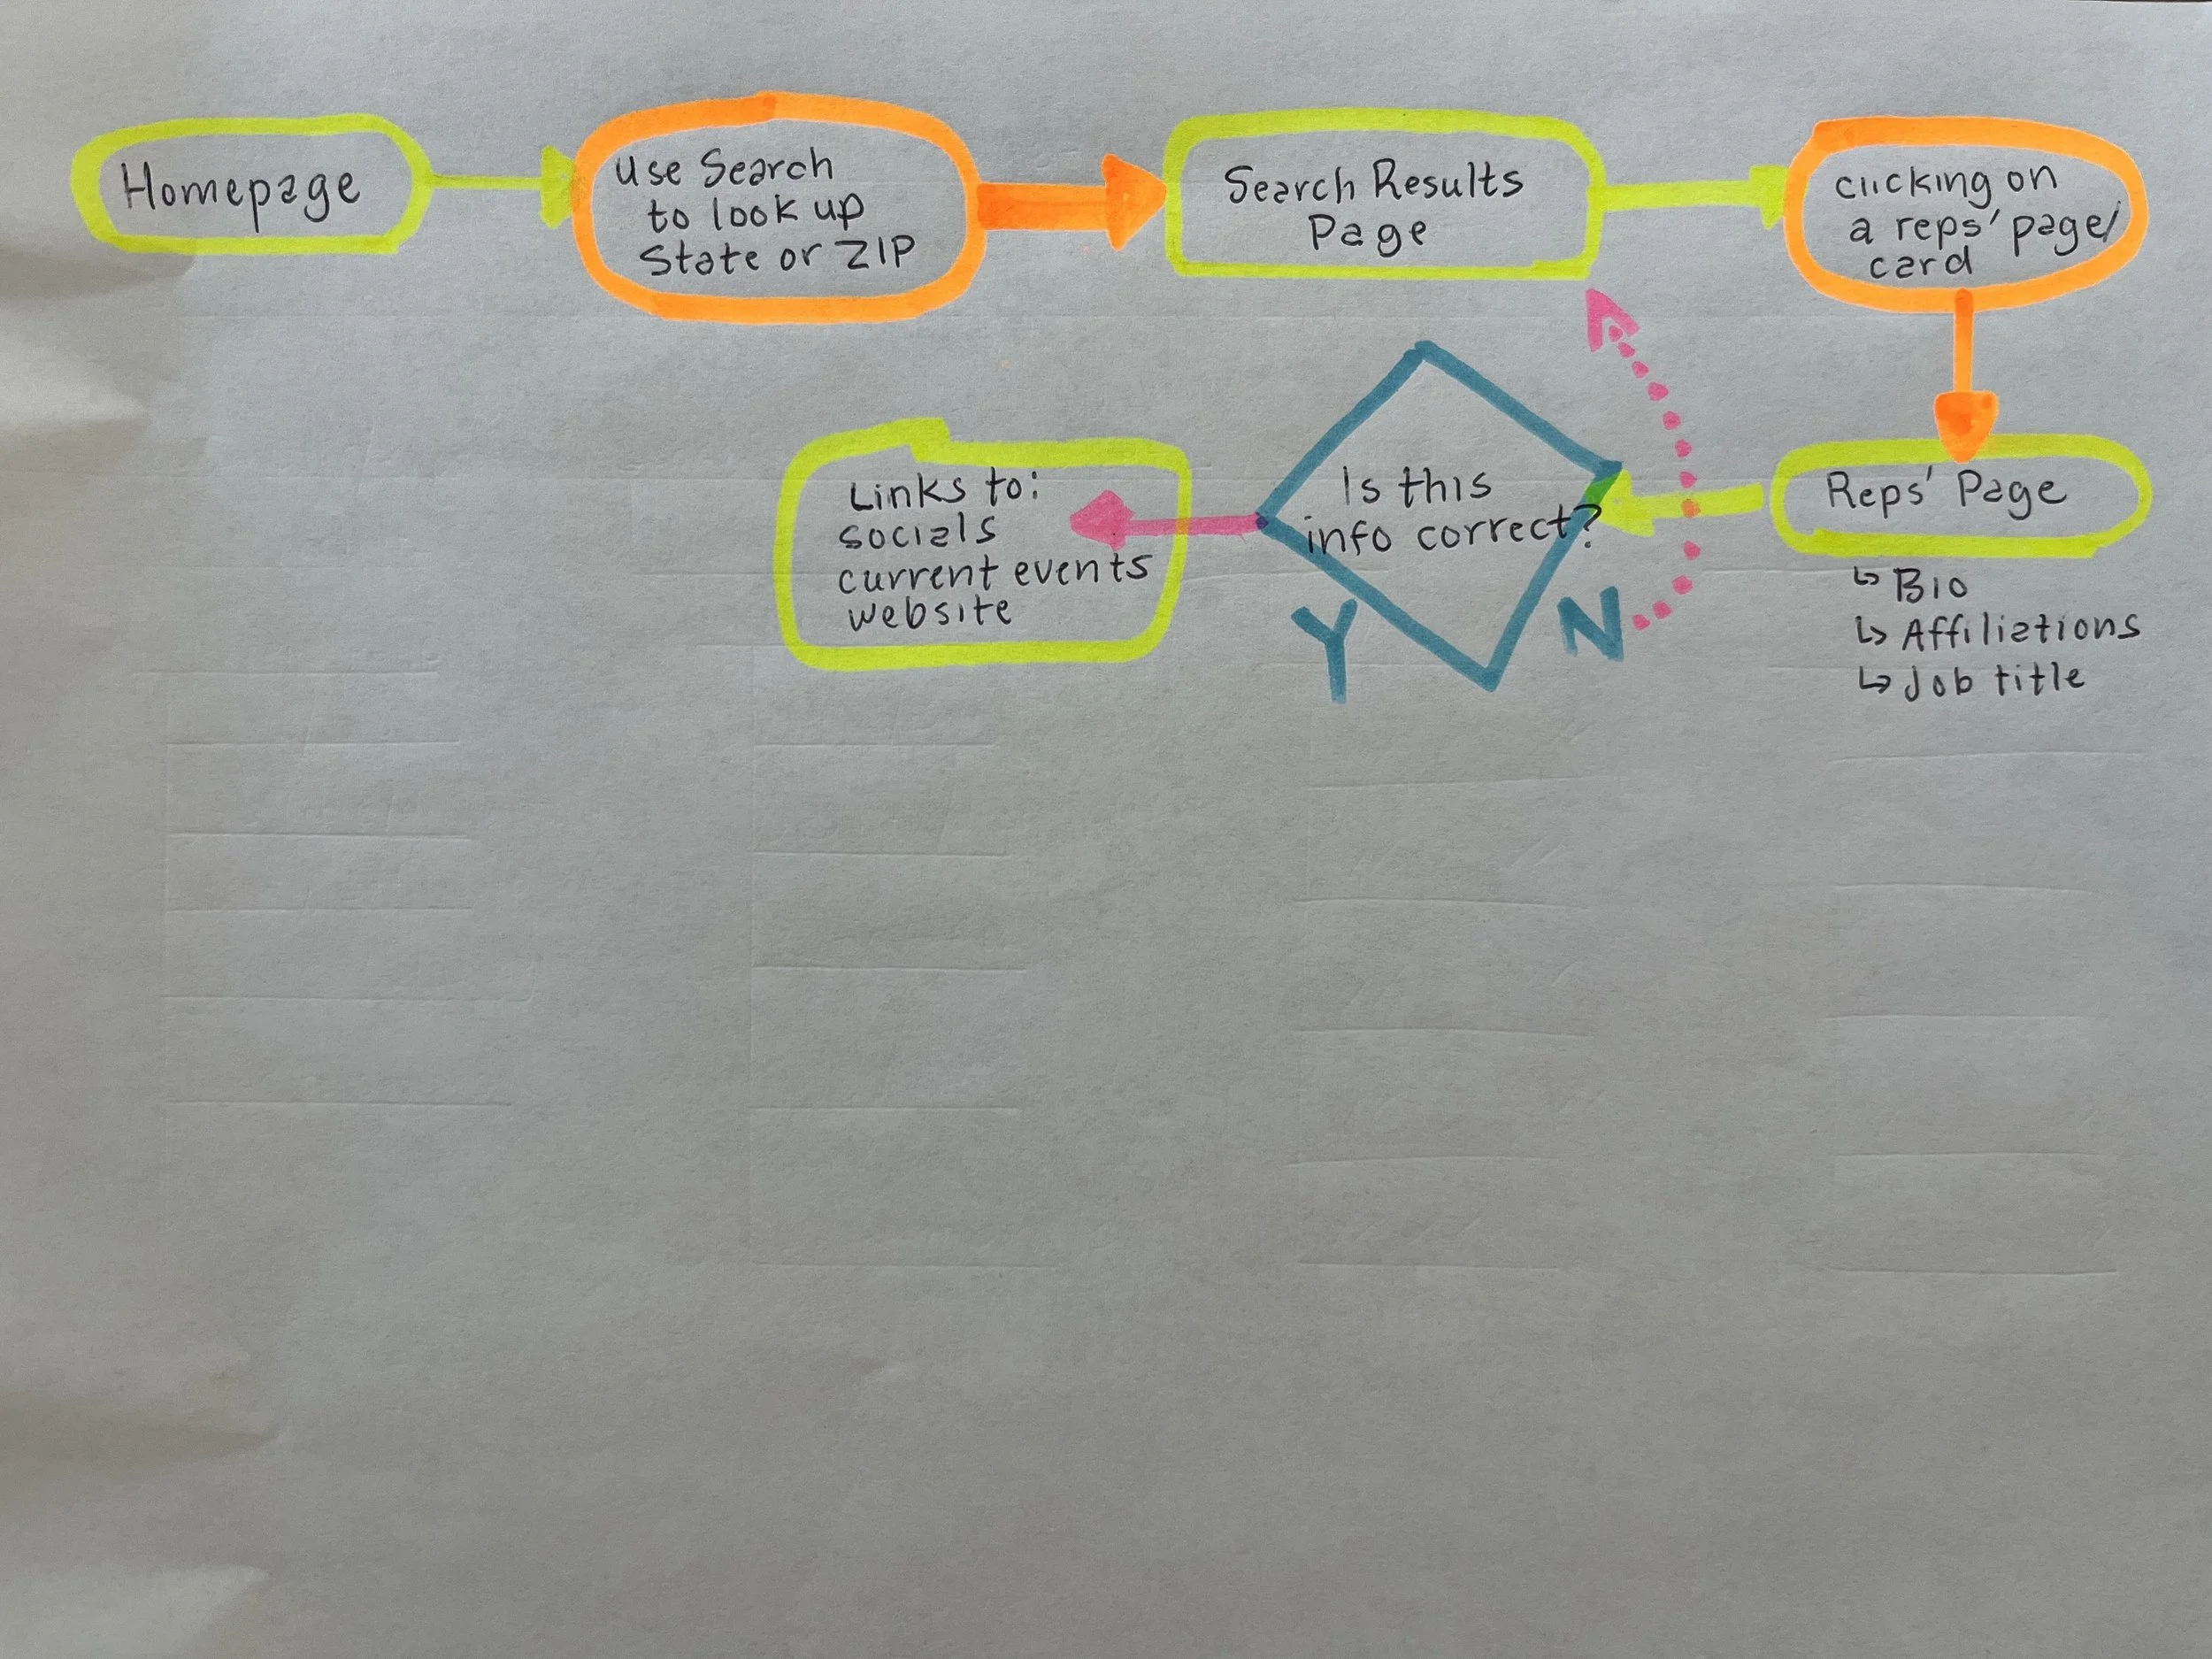 Homepage
Use Search
to look up
State or ZIP
Search Results
Page
clicking on
a reps' page/
card
Reps' Page
↳ Bio
↳ Affiliations
↳ Job title
Is this
info correct?
Y
N
Links to:
socials
current events
website